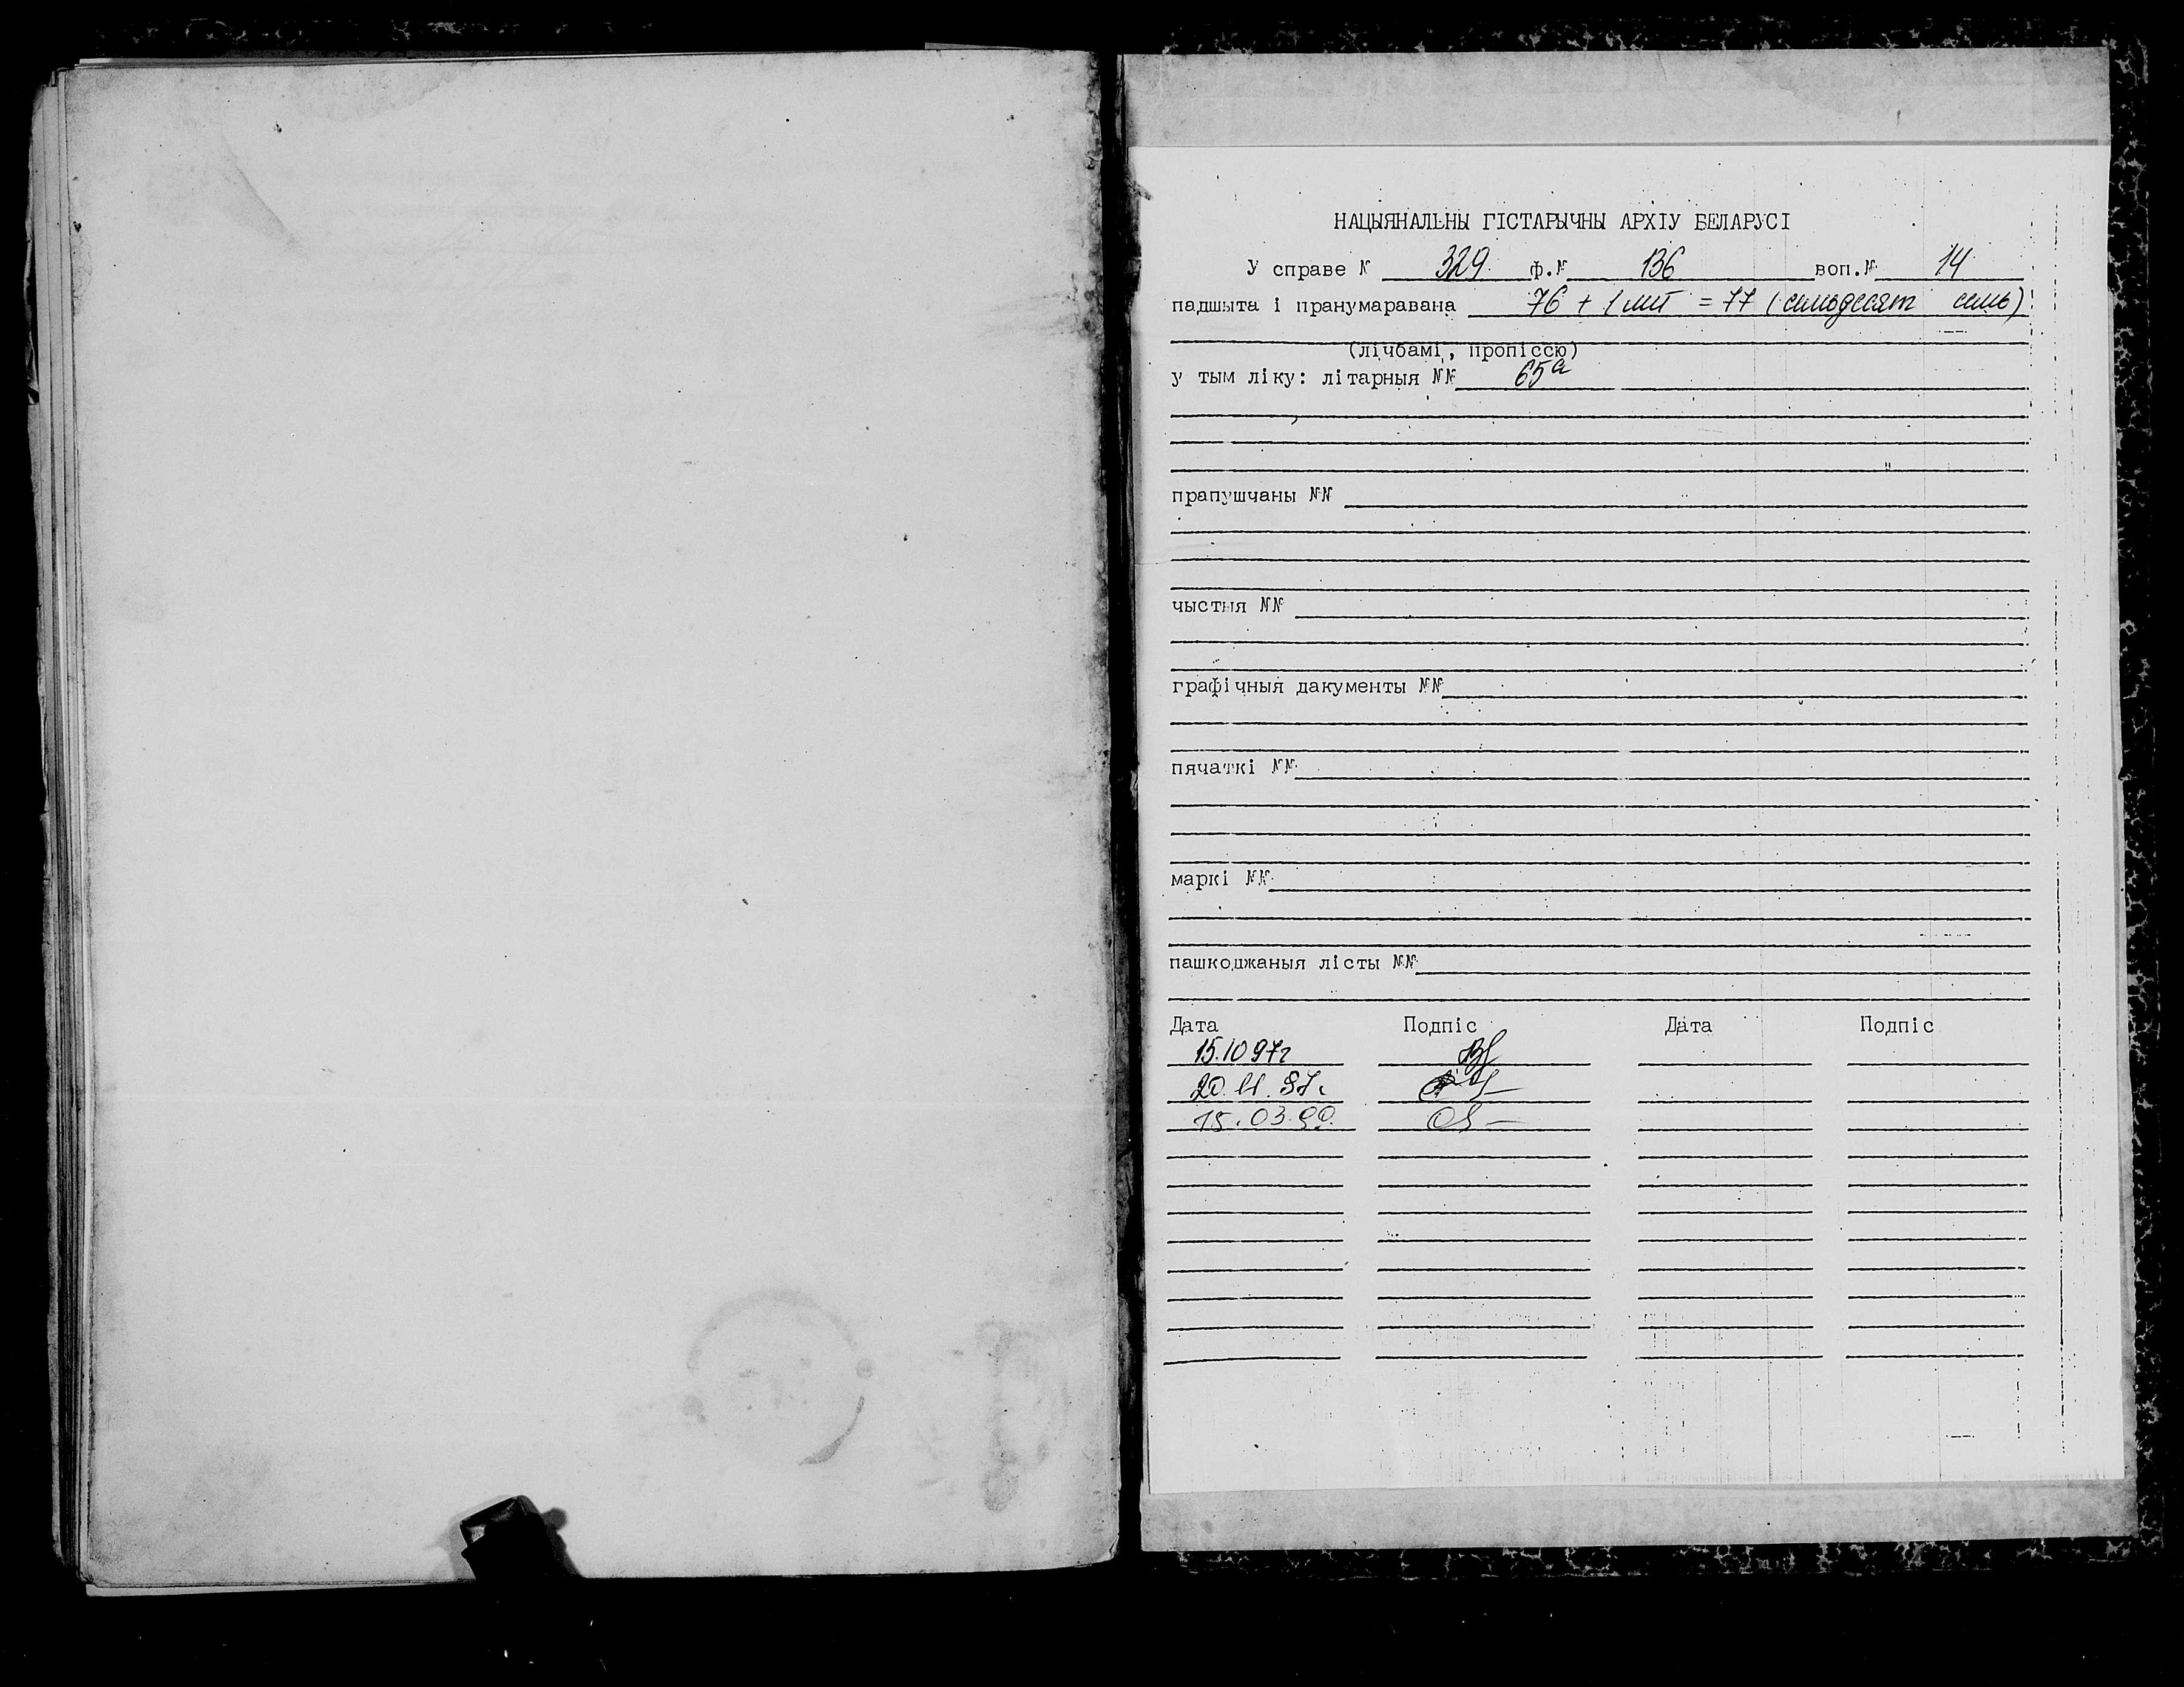 НАЦЫЯНАЛЬНЫ ГІСТАРЫЧНЫ АРХІУ БЕЛАРУСІ
У справе № 329. ф.№ 136 воп.№ 14
падшыта і пранумаравана 76 + 1 лит = 77 (семьдесят семь)
(лічбамі, пропіссю)
у тым ліку: літарныя №№ 65а
прапушчаны №№
чыстыя №№
графічныя дакументы №№
пячаткі №№
маркі №№
пашкоджаныя лісты №№
Дата Подпіс Дата Подпіс
15.10 97г
20.11.97г.
15.03.99.